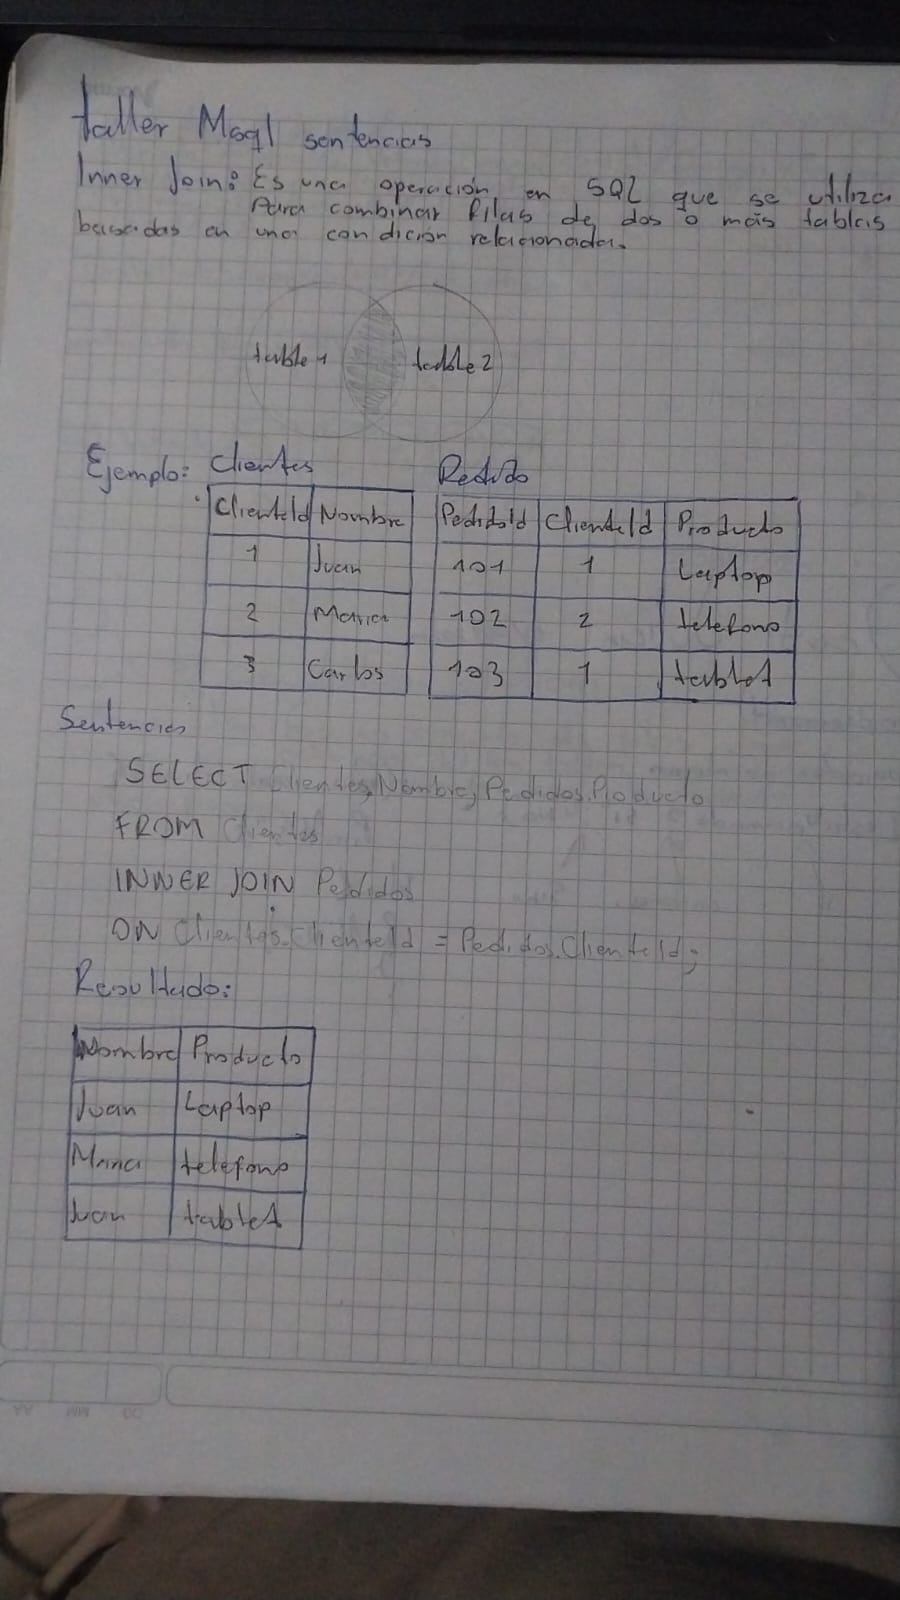 taller Msql sentencias
Inner Join: Es una operación en SQL que se utiliza
Para combinar filas de dos o más tablas
basadas en una condición relacionada.
table 1 table 2
Ejemplo: Clientes Pedido
ClienteId Nombre PedidoId ClienteId Producto
1 Juan 101 1 Laptop
2 Maria 102 2 telefono
3 Carlos 103 1 tablet
Sentencias
SELECT Clientes.Nombre, Pedidos.Producto
FROM Clientes
INNER JOIN Pedidos
ON Clientes.ClienteId = Pedidos.ClienteId;
Resultado:
Nombre Producto
Juan Laptop
Maria telefono
Juan tablet